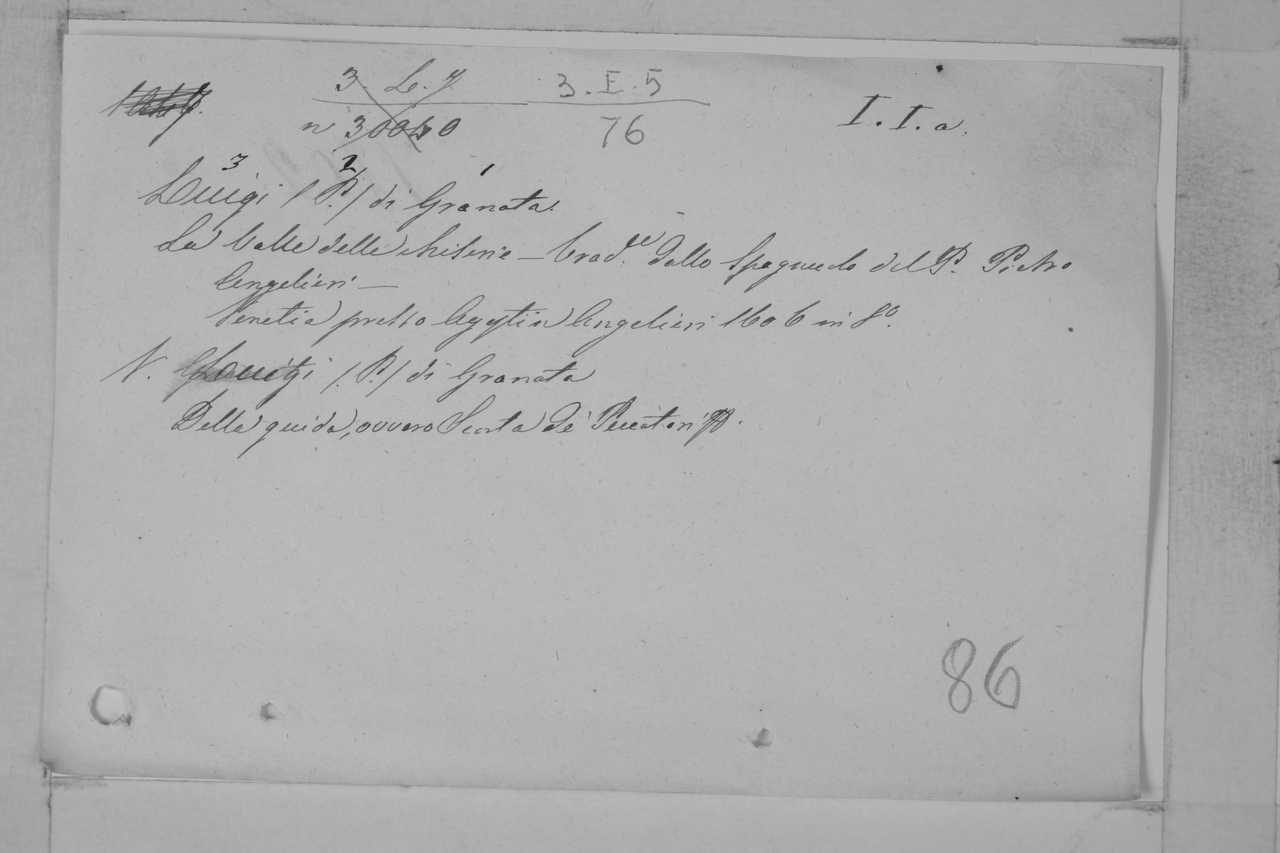 3. L. 7 3.E.5 I.I.a.
n 30040 76
3 2 1
Luigi (P.) di Granata.
La Valle delle Miserie – Trad.ne dallo Spagnuolo del P. Pietro
Angelieri –
Venetia presso Agostin Angelieri 1606 in 8º.
V. Luigi (P.) di Granata
Della guida, ovvero Scorta de' Peccatori
86